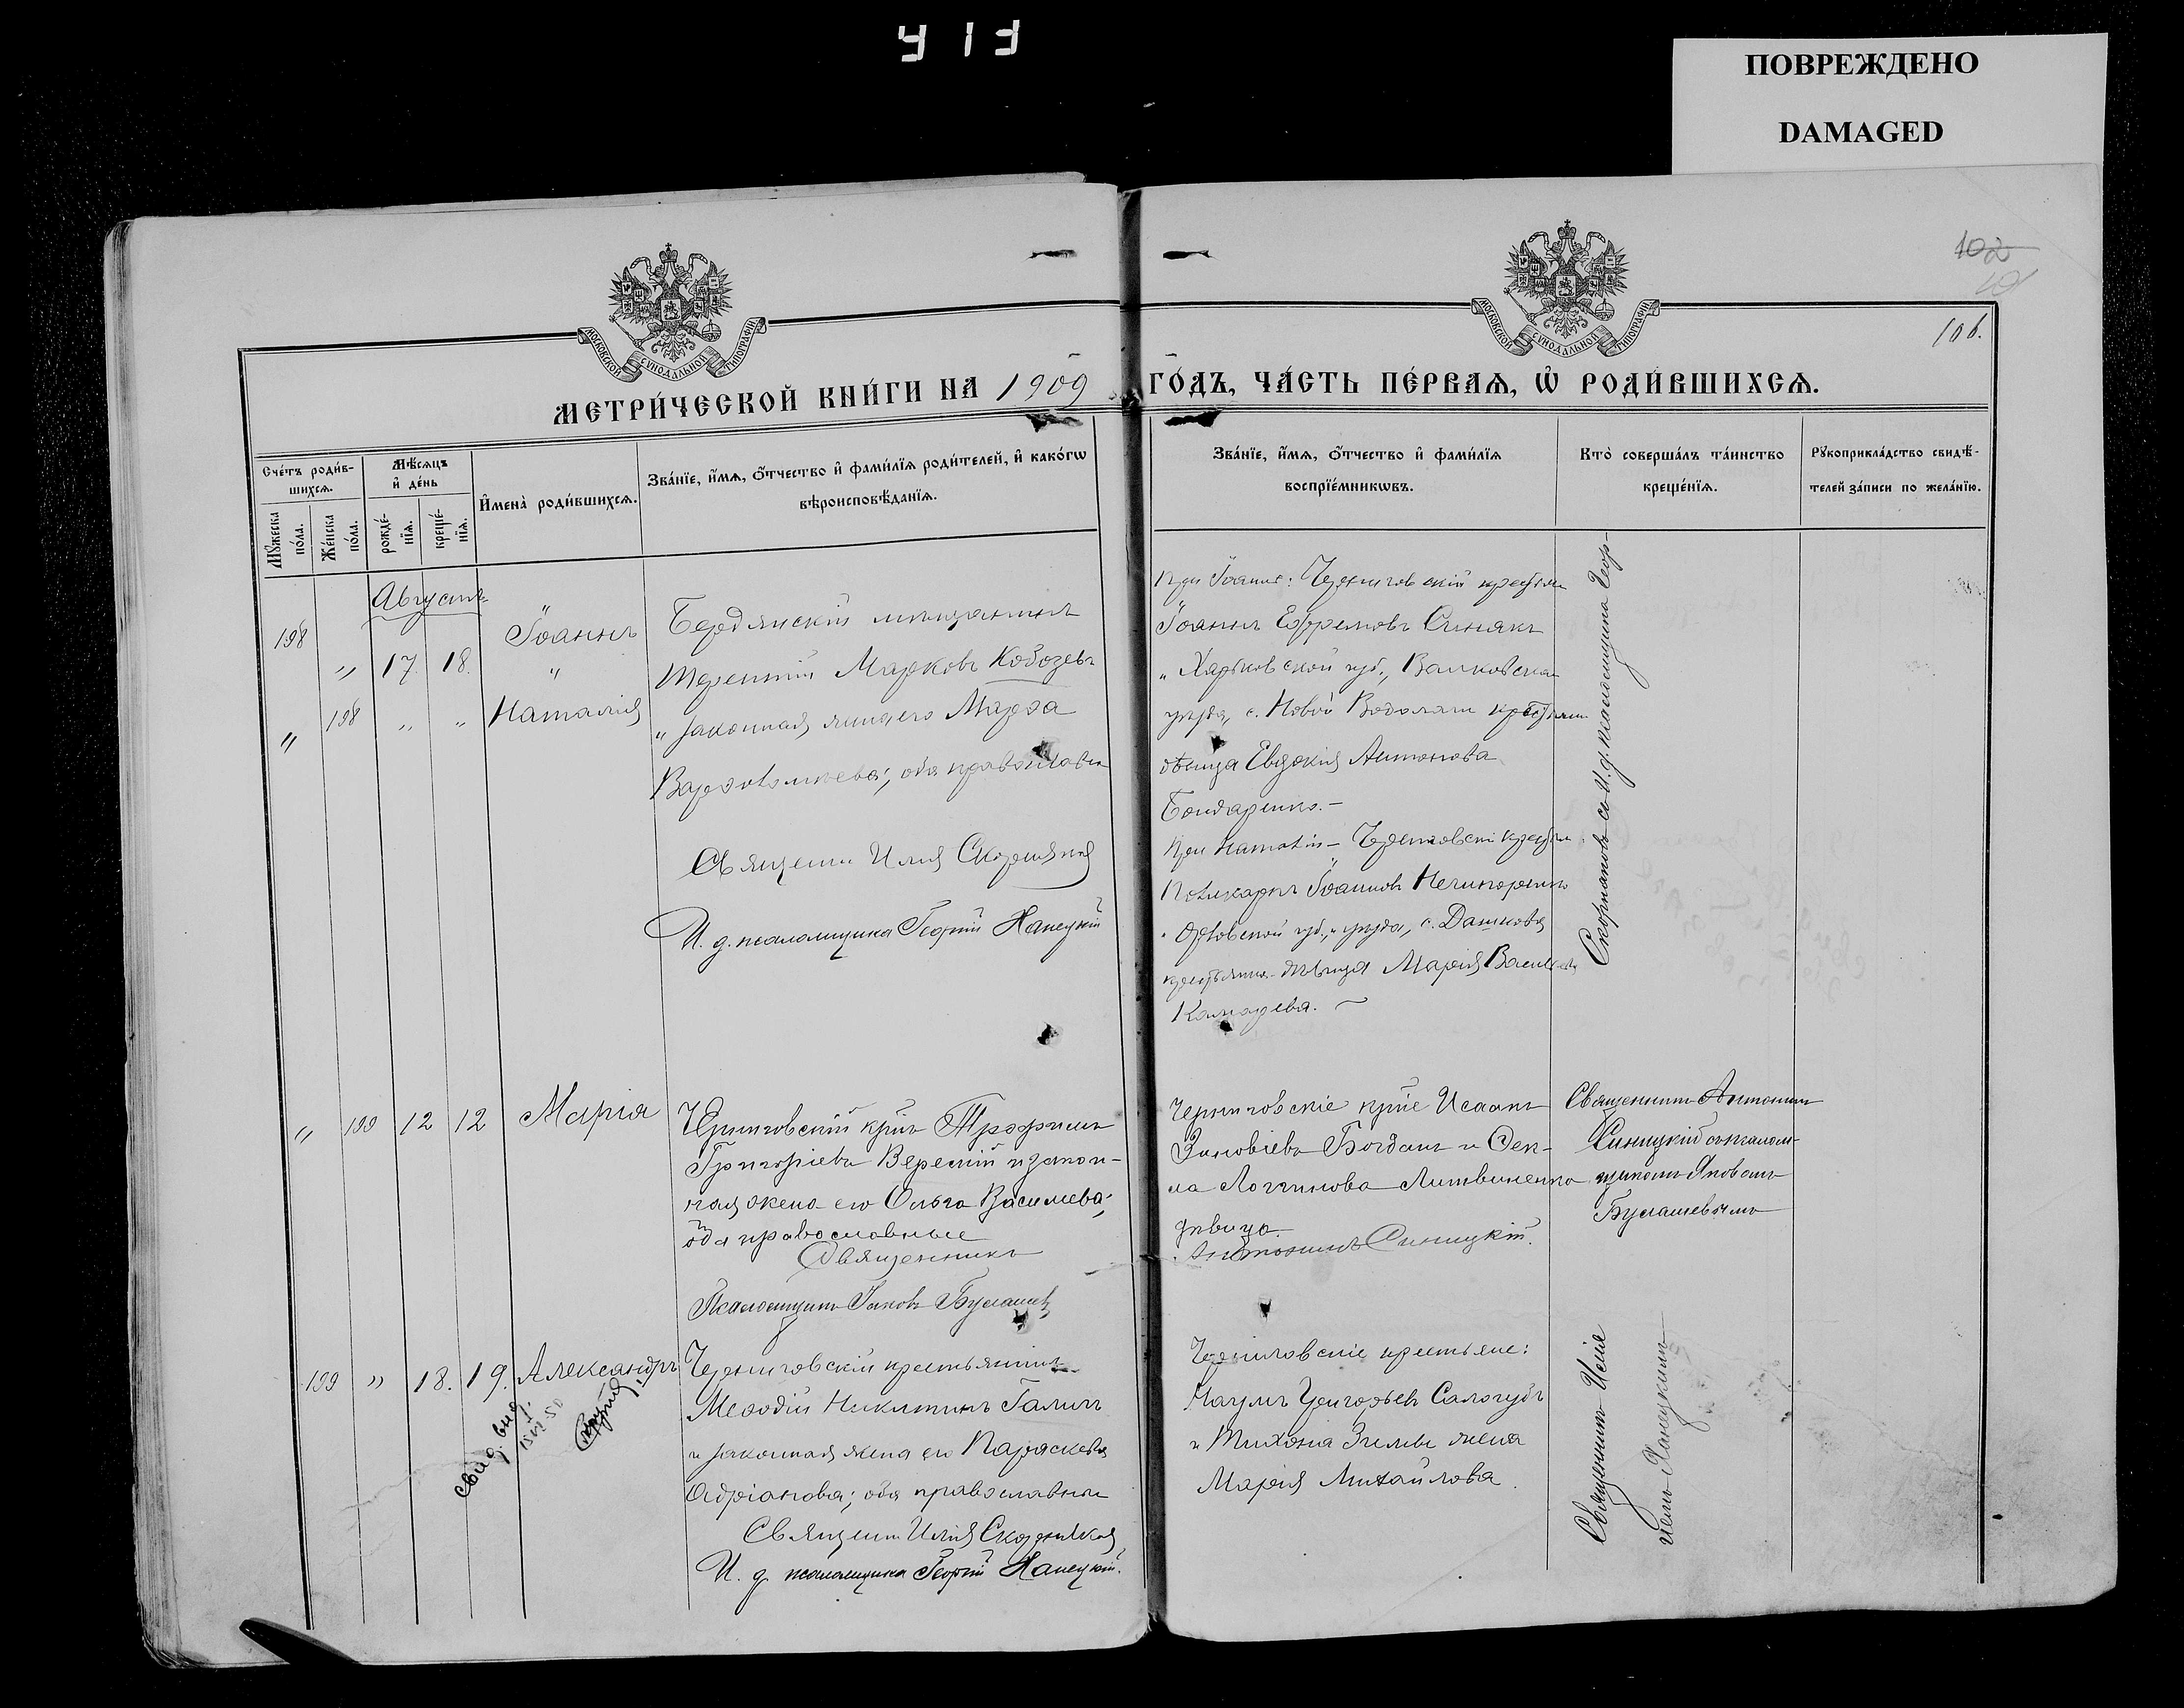 413
ПОВРЕЖДЕНО
DAMAGED
102
101
106.
МОСКОВСКОЙ СѴНОДАЛЬНОЙ ТИПОГРАФІИ
МОСКОВСКОЙ СѴНОДАЛЬНОЙ ТИПОГРАФІИ
МЕТРИ́ЧЕСКОЙ КНИ́ГИ НА 1909 ГО́ДЪ, ЧА́СТЬ ПЕ́РВАѦ, Ѡ РОДИ́ВШИХСѦ.
Сче́тъ роди́в-
шихсѧ.
Мꙋ́жеска
по́ла.
Же́нска
по́ла.
Мѣ́сѧцъ
и де́нь
рожде́-
нїѧ.
креще́-
нїѧ.
Имена̀ роди́вшихсѧ.
Зва́нїе, и́мѧ, ѻ́тчество и фами́лїѧ роди́телей, и како́гѡ
вѣроисповѣ́данїѧ.
Зва́нїе, и́мѧ, ѻ́тчество и фами́лїѧ
воспрїе́мникѡвъ.
Кто̀ соверша́лъ та́инство
креще́нїѧ.
Рꙋкоприкла́дство свидѣ́-
телей за́писи по жела́нїю.
Августъ
198 " 17. 18. Іоаннъ
" 198 " " Наталія
Бердянскій мѣщанинъ
Терентій Марковъ Кобозевъ
и законная жена его Марѳа
Варѳоломѣева; оба православн
Священн Илія Скорняковъ
И. д. псаломщика Георгій Ханецкій
При Іоаннѣ: Черниговскій крестьян
Іоаннъ Ефремовъ Синякъ
и Харьковской губ., Валковскаго
уѣзда, с. Новой Водолаги крестьян
дѣвица Евдокія Антонова
Бондаренко. –
При Наталіи – Черниговскі крестьян
Поликарпъ Іоанновъ Нечипоренко
и Орловской губ., и уѣзда, с. Дашкова
крестьянка-дѣвица Марія Васильева
Комарева. –
Скорняковъ со И. д. псаломщика Геор-
" 199 12 12 Марія
Черниговскій крнъ Трофимъ
Григоріевъ Верескій и закон-
ная жена его Ольга Васильева;
оба православные
Священникъ
Антонинъ Синицкій.
Псаломщикъ Іаковъ Булашевъ
Черниговскіе крне Исаакъ
Зиновіевъ Богданъ и Ѳек-
ла Логгинова Литвиненко
дѣвица
Священникъ Антонинъ
Синицкій съ псалом-
щикомъ Яковомъ
Булашевымъ
199 " 18. 19. Александръ
Черниговскій крестьянинъ
Меѳодій Никитинъ Галичъ
и законная жена его Параскева
Адріанова; оба православны
Священн Илія Скорняков
И. д. псаломщика Георгій Ханецкій.
Черниговскіе крестьяне:
Наумъ Григорьев Сологубъ
и Тихона Зимы жена
Марія Михайлова.
Священникъ Илія
Ханецкимъ